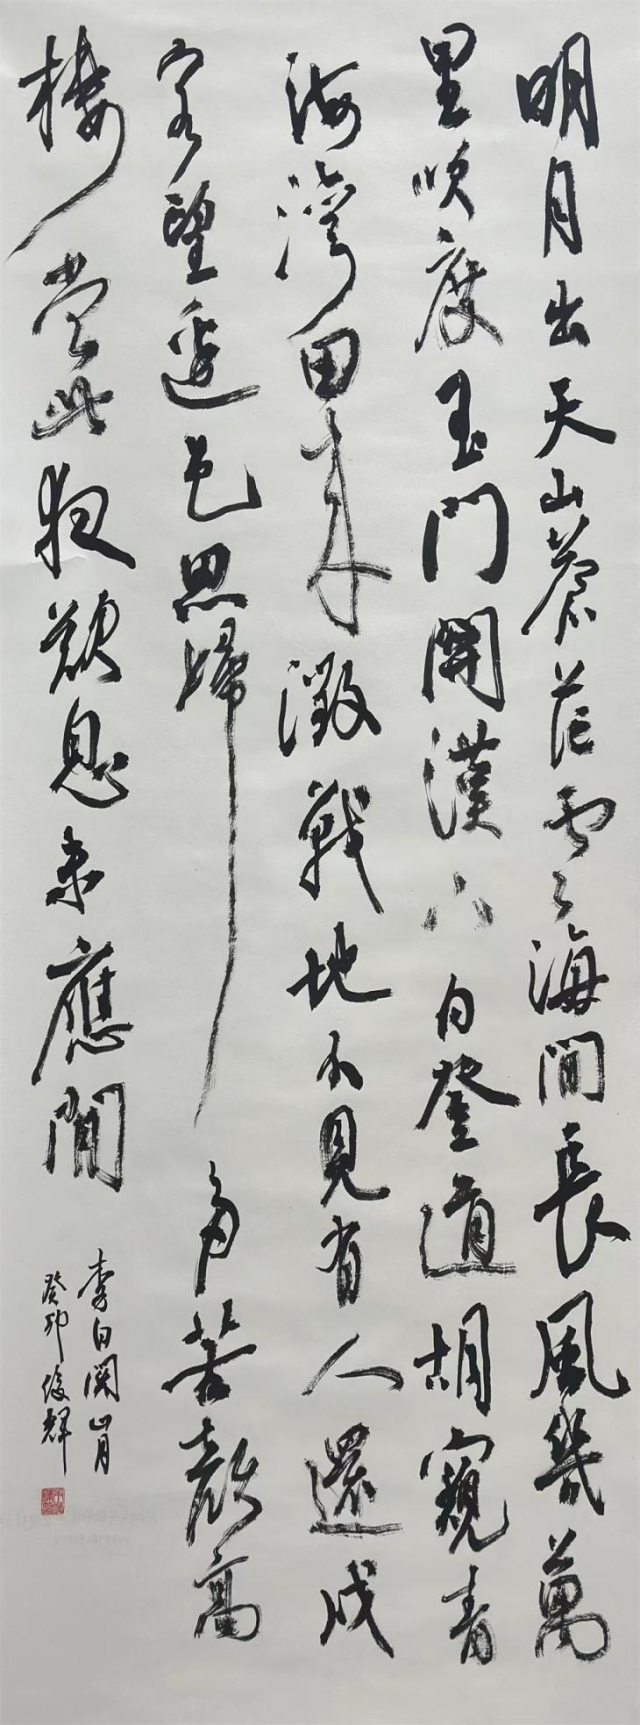 明月出天山蒼茫雲海間長風幾萬
里吹度玉門關漢下白登道胡窺青
海灣由來徵戰地不見有人還戍
客望邊邑思歸多苦顏高
樓當此夜歎息未應閒
李白関山月
癸卯俊輝